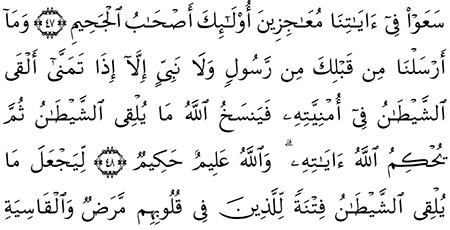 سَعَوْا۟ فِىٓ ءَايَـٰتِنَا مُعَـٰجِزِينَ أُو۟لَـٰٓئِكَ أَصْحَـٰبُ ٱلْجَحِيمِ ﴿٤٧﴾ وَمَآ
أَرْسَلْنَا مِن قَبْلِكَ مِن رَّسُولٍ وَلَا نَبِىٍّ إِلَّآ إِذَا تَمَنَّىٰٓ أَلْقَى
ٱلشَّيْطَـٰنُ فِىٓ أُمْنِيَّتِهِۦ فَيَنسَخُ ٱللَّهُ مَا يُلْقِى ٱلشَّيْطَـٰنُ ثُمَّ
يُحْكِمُ ٱللَّهُ ءَايَـٰتِهِۦ ۗ وَٱللَّهُ عَلِيمٌ حَكِيمٌ ﴿٤٨﴾ لِّيَجْعَلَ مَا
يُلْقِى ٱلشَّيْطَـٰنُ فِتْنَةً لِّلَّذِينَ فِى قُلُوبِهِم مَّرَضٌ وَٱلْقَاسِيَةِ